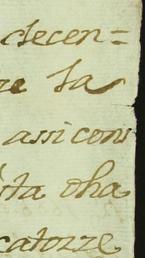 decen=
re la
assi cons
sta oha
catozze